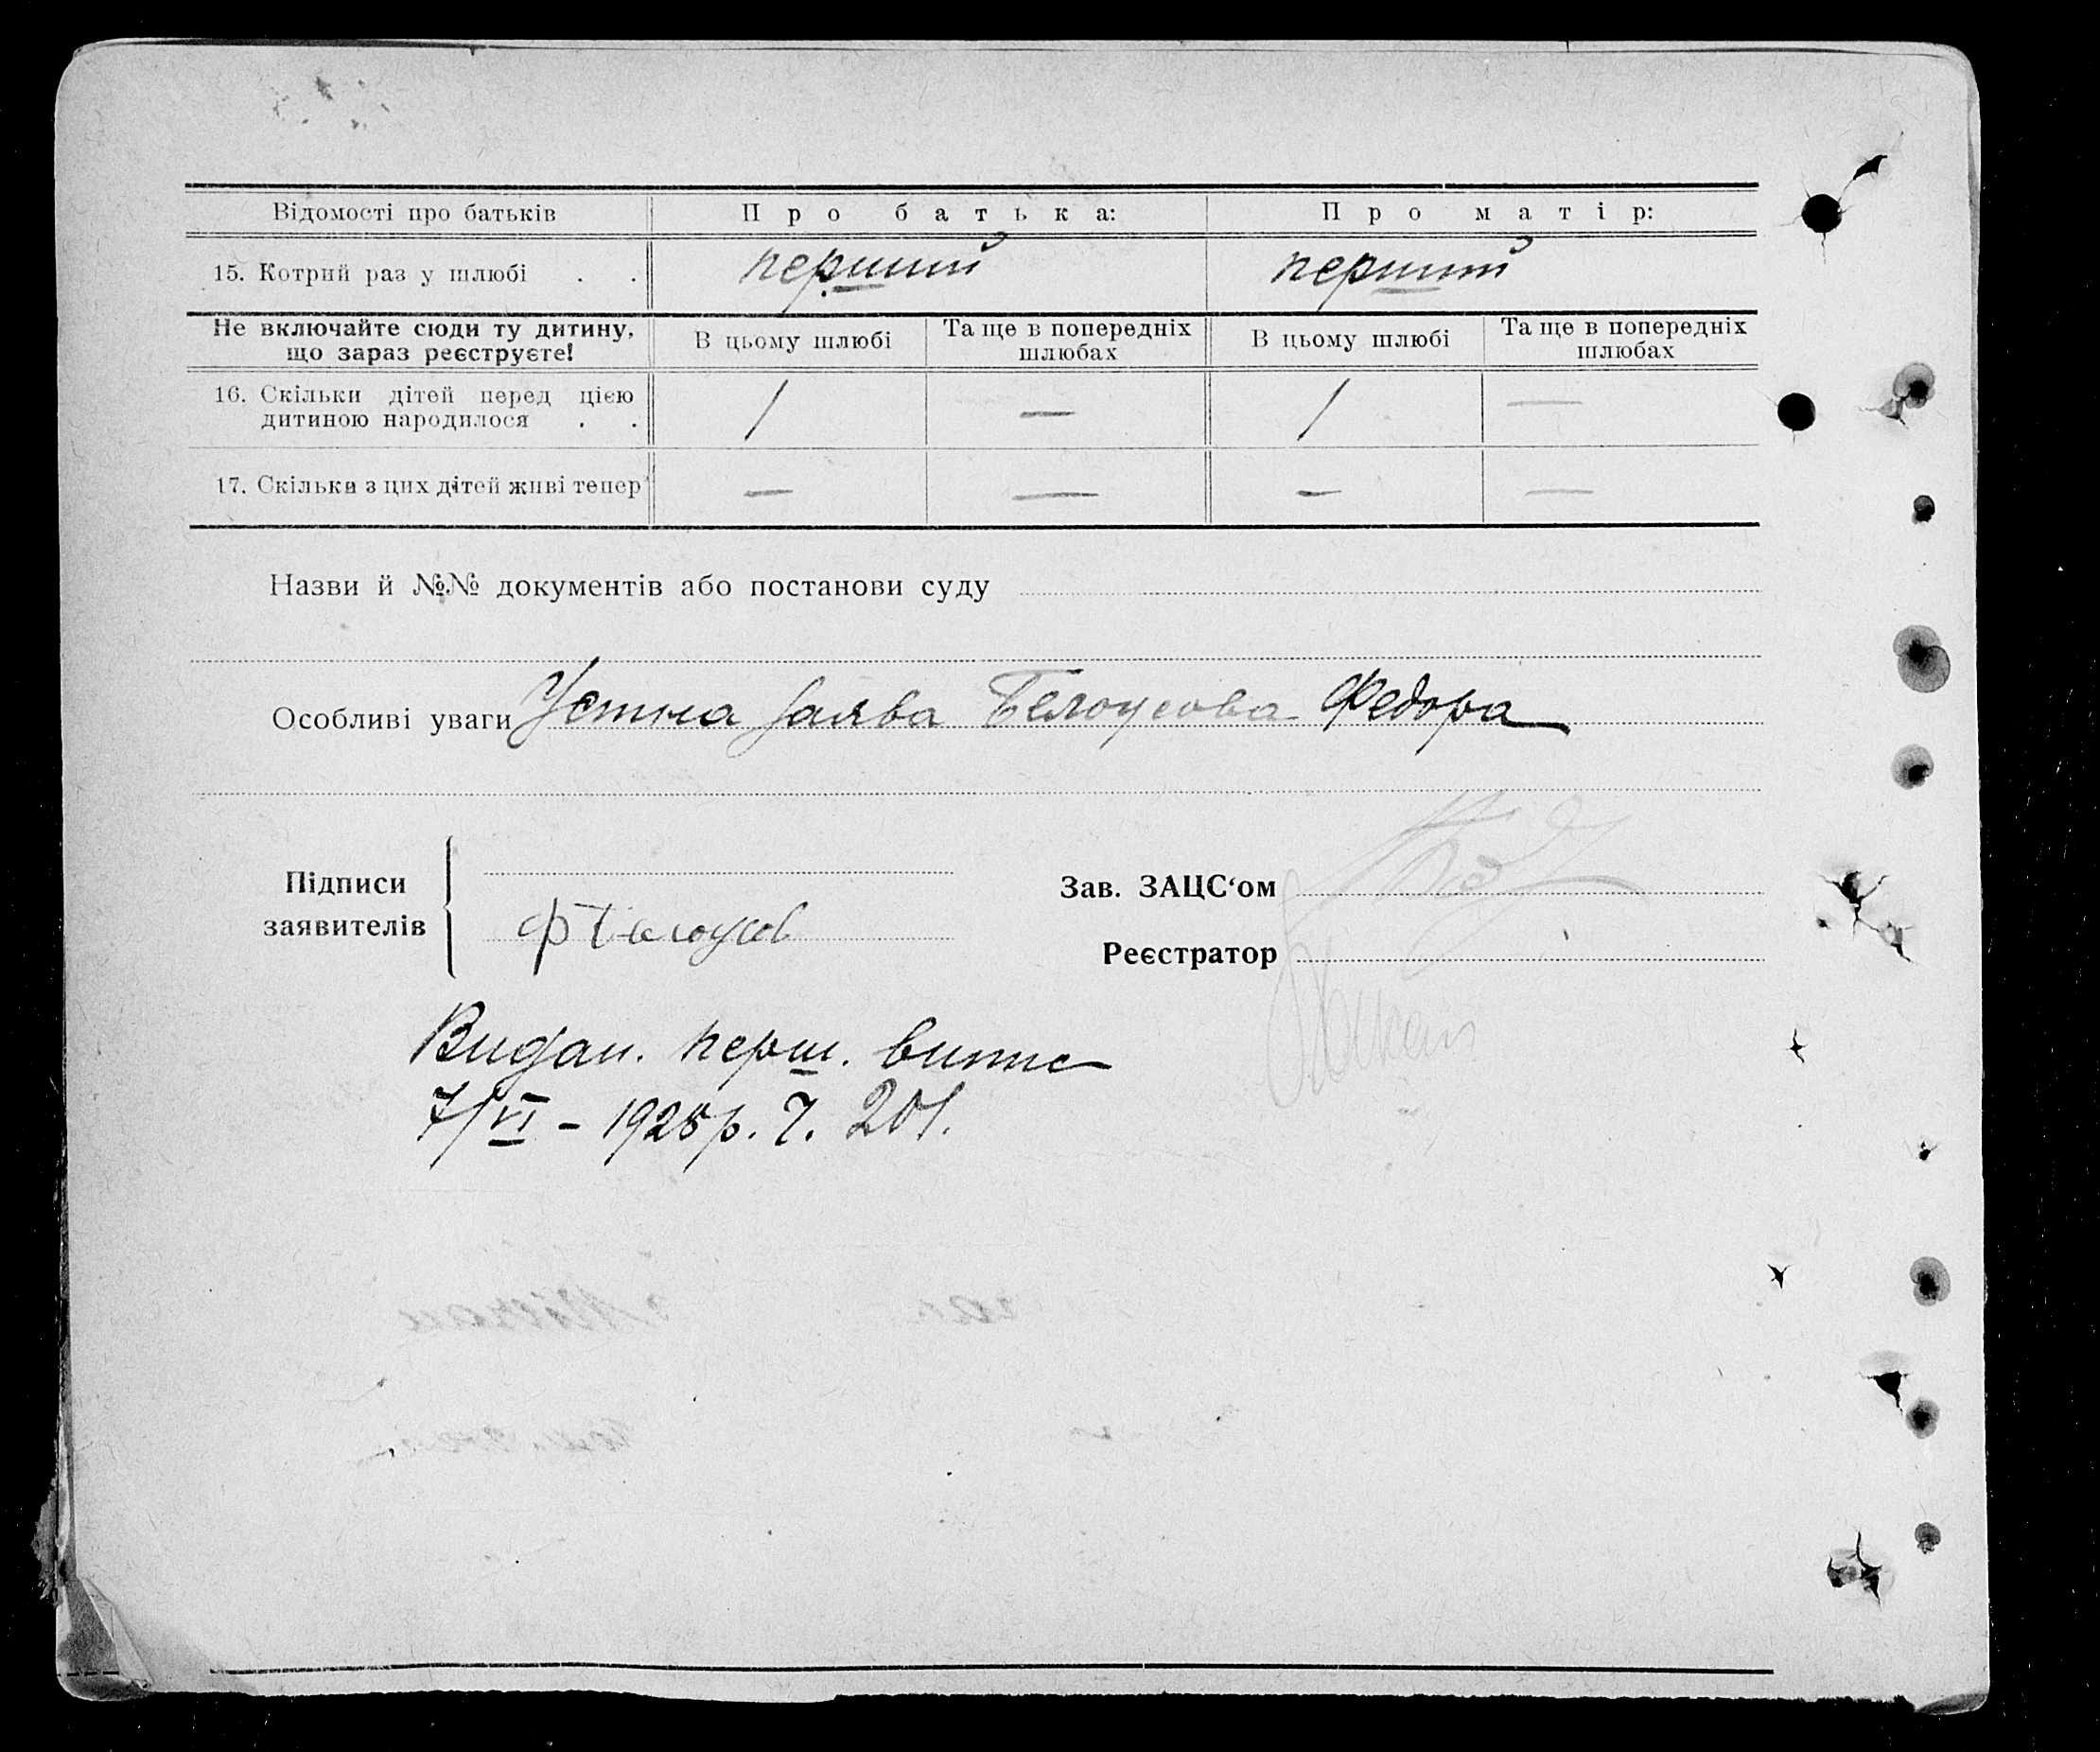 Відомості про батьків Про батька: Про матір:
15. Котрий раз у шлюбі . . перший перший
Не включайте сюди ту дитину, що зараз реєструєте! В цьому шлюбі Та ще в попередніх шлюбах В цьому шлюбі Та ще в попередніх шлюбах
16. Скільки дітей перед цією дитиною народилося . . 1 — 1 —
17. Скільки з цих дітей живі тепер — — — —
Назви й №№ документів або постанови суду
Особливі уваги Устна заява Белоусова Федора
Підписи заявителів
Ф Белоусов
Зав. ЗАЦС‘ом
Реєстратор
Видан. перш. випис
7/VI – 1928 р. Ч. 201.